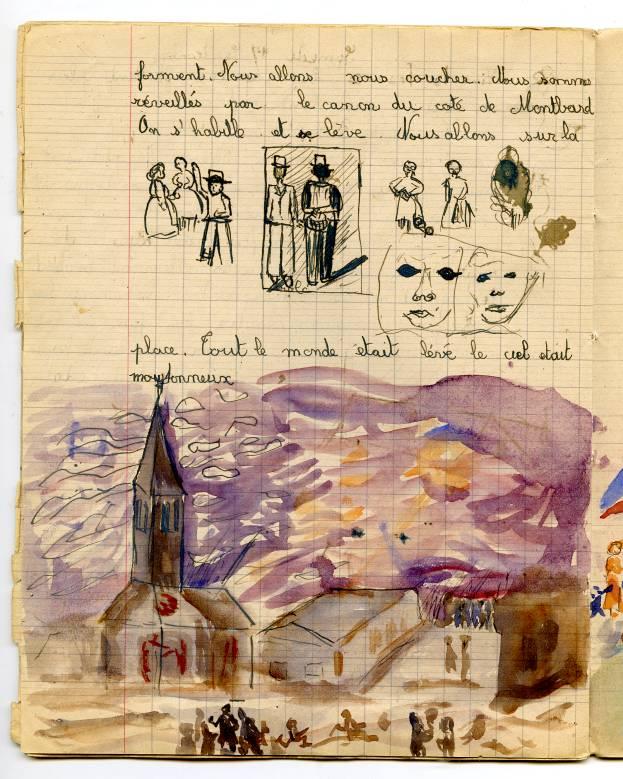 forment. Nous allons nous coucher. Nous somme
réveillés par le canon du coté de Montbard
On s'habille et se lève. Nous allons sur la
place. Tout le monde était lévé le ciel etait
moutonneux